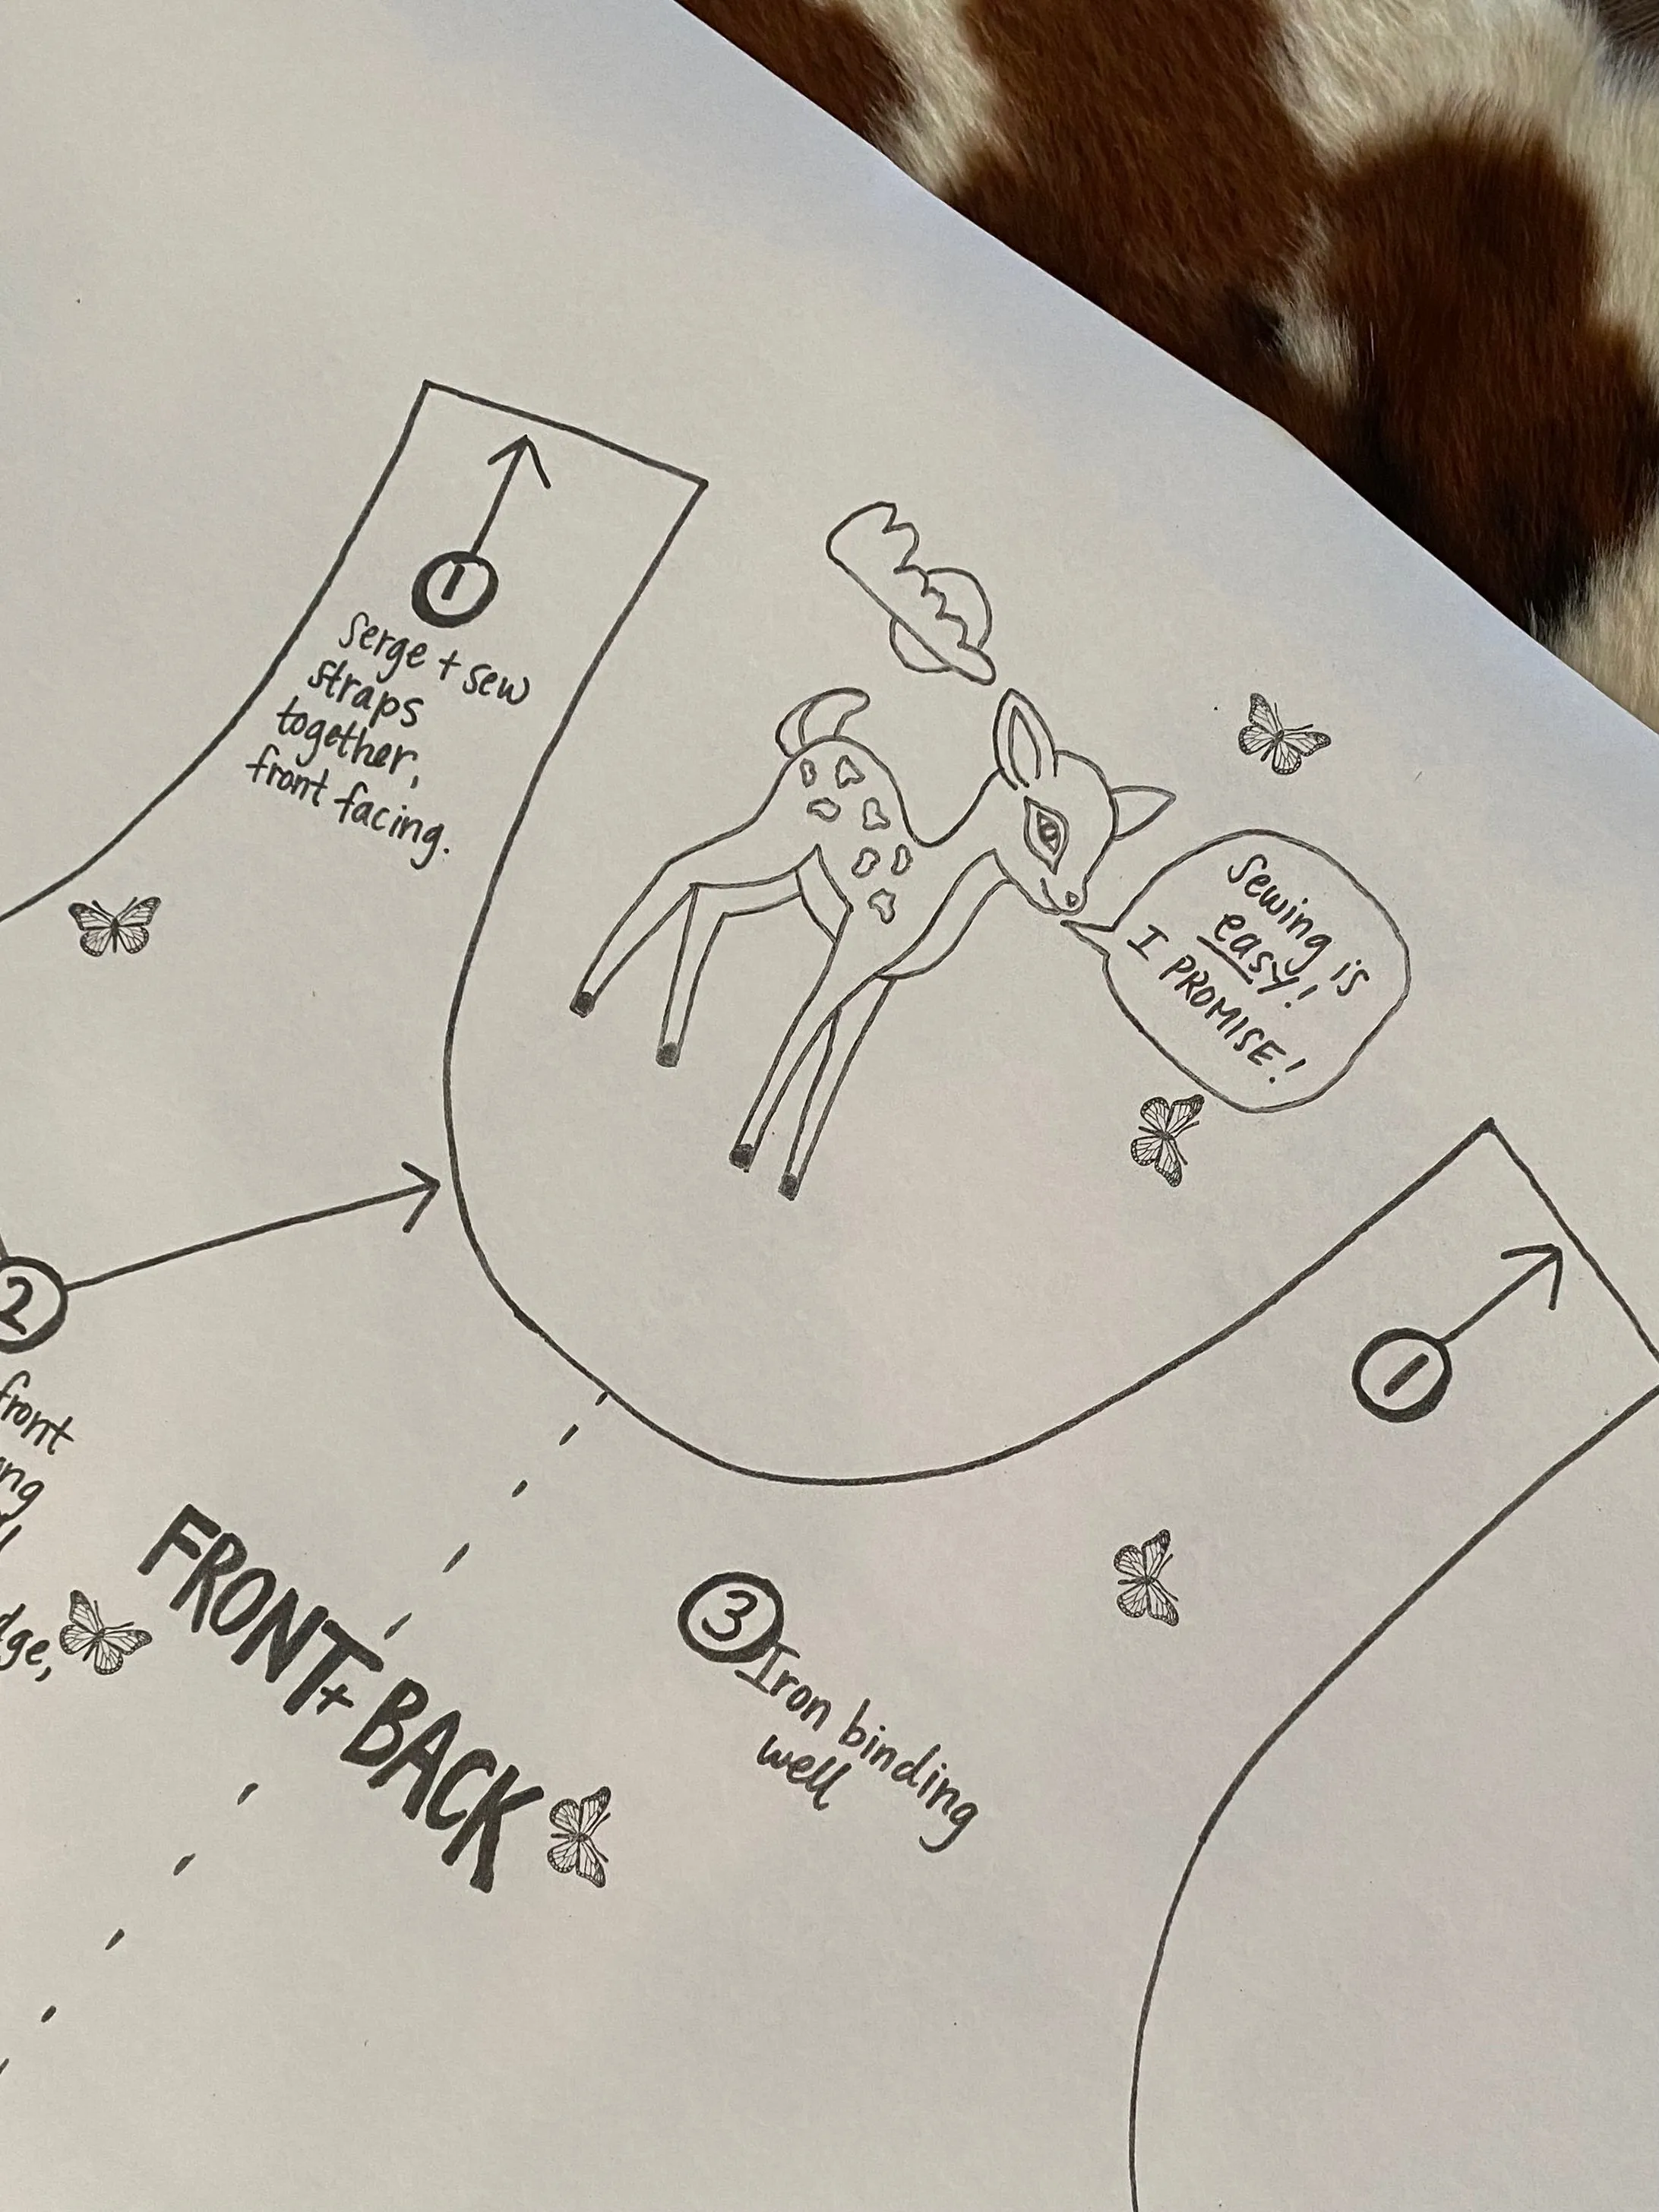 1
Serge + sew
straps
together,
front facing.
Sewing is
easy!
I PROMISE!
1
2
front
FRONT + BACK
3
Iron binding
well